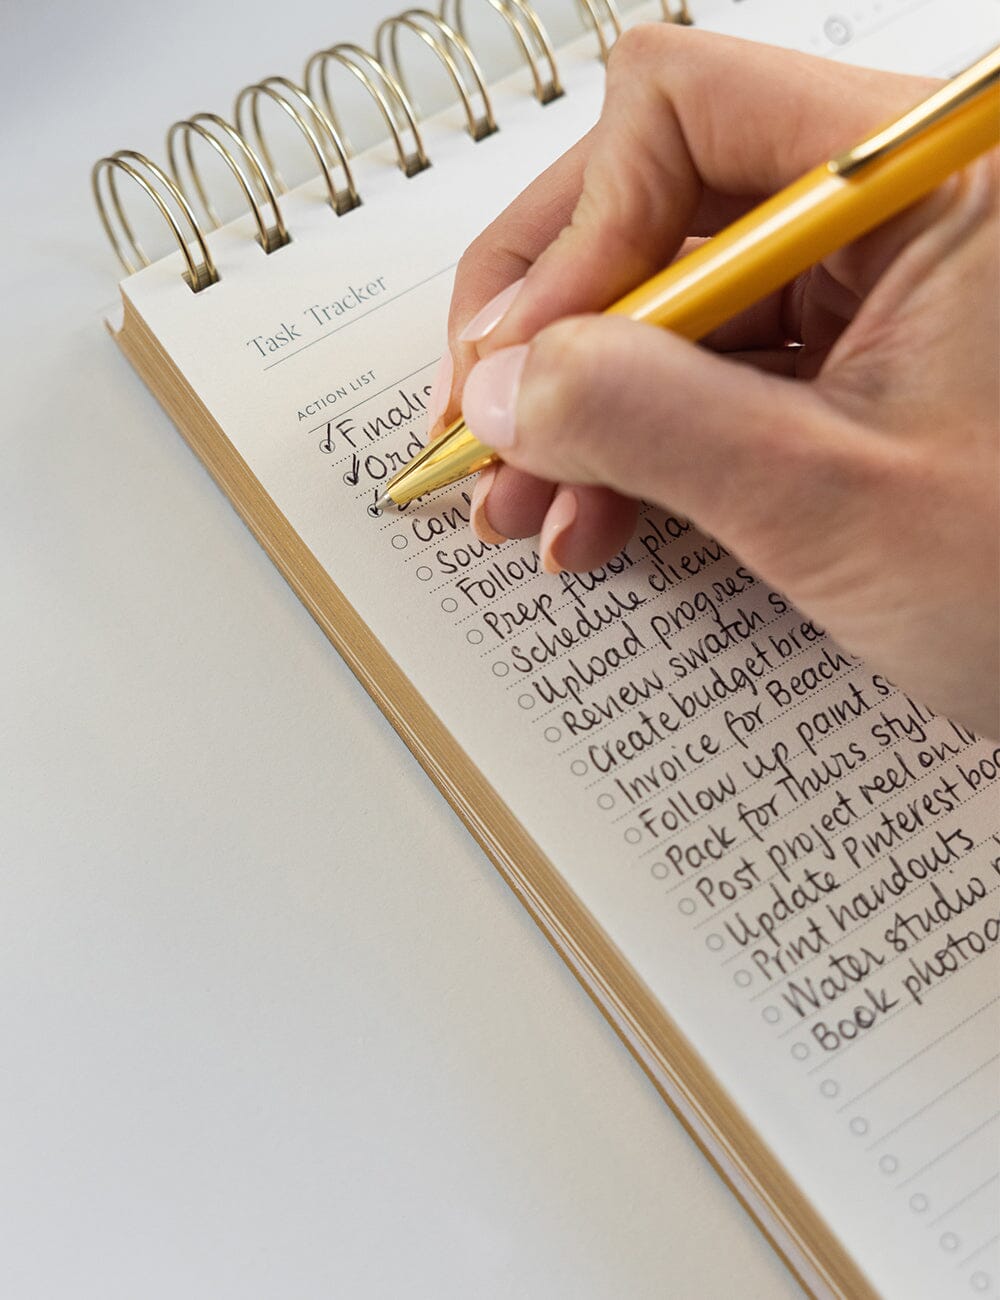 Task Tracker
ACTION LIST
Finalis
Ord
Con
Sou
Follow
Prep floor pla
Schedule clien
Upload progres
Review swatch s
Create budget bre
Invoice for Beach
Follow up paint s
Pack for Thurs styli
Post project reel on In
Update Pinterest boa
Print handouts
Water studio
Book photog